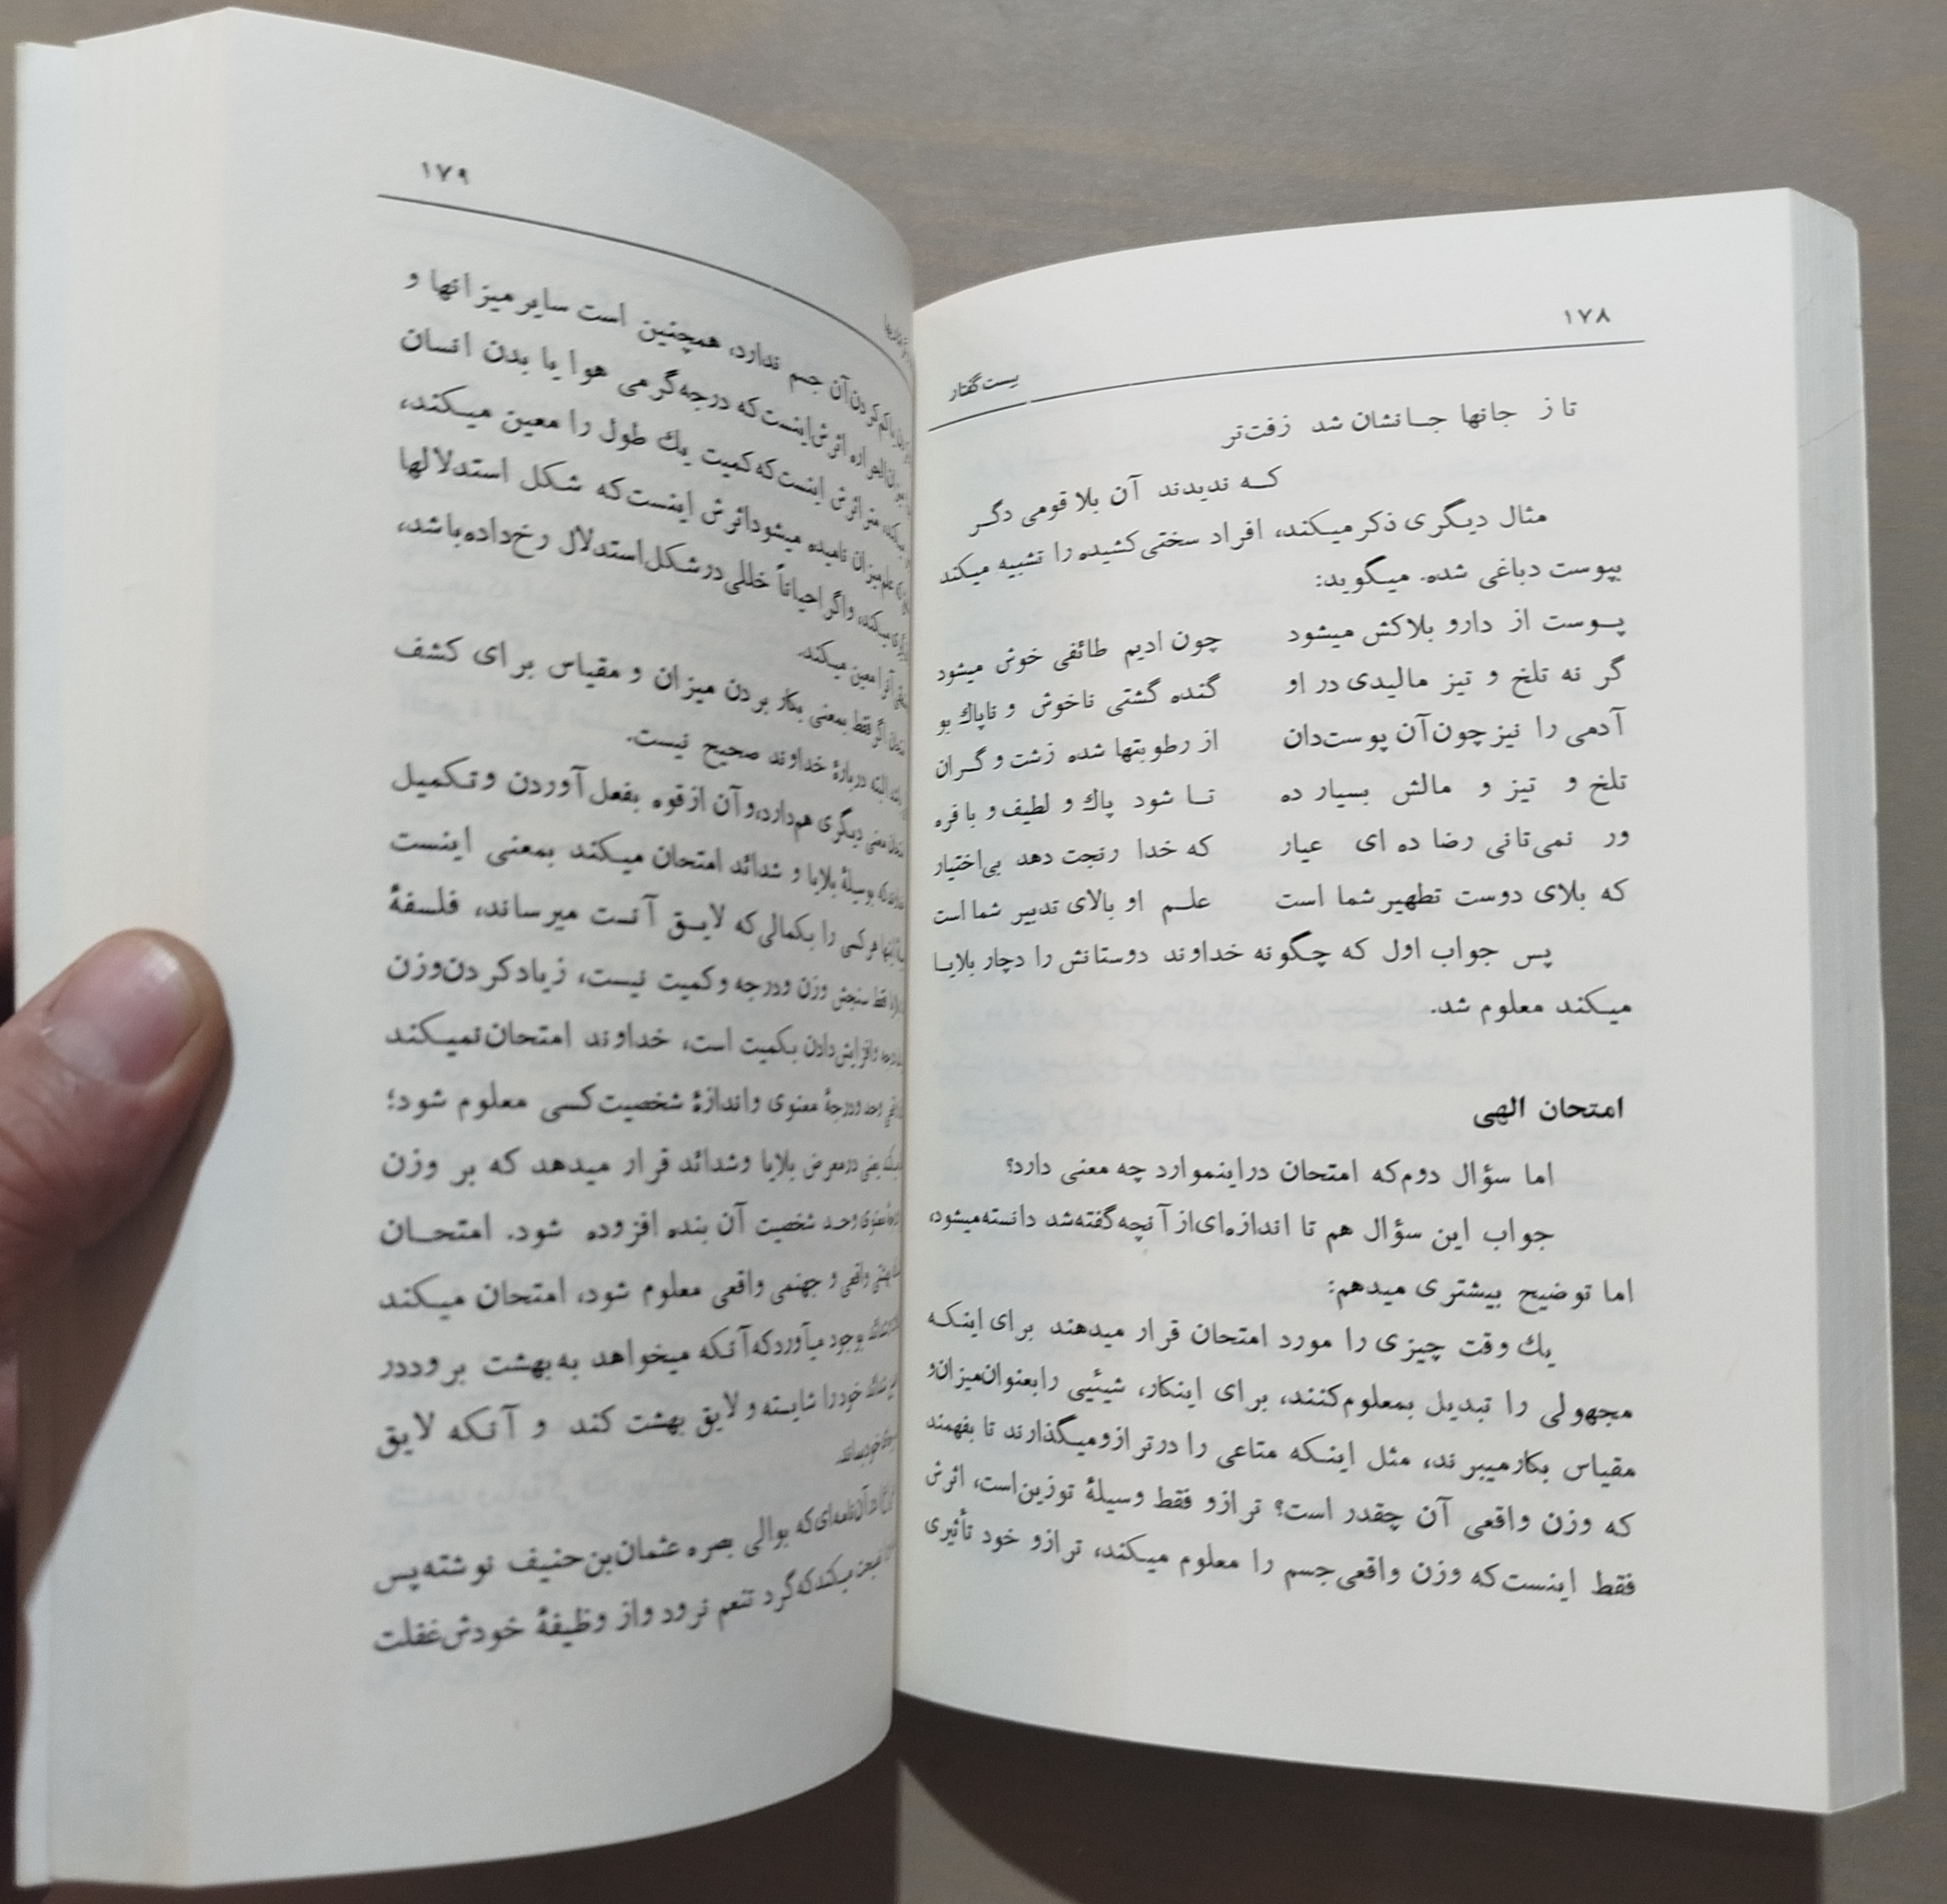 ۱۷۸
بیست گفتار
تا ز جانها جـانشان شد زفت‌تر
کـه ندیدند آن بلا قومی دگـر
مثال دیـگری ذکر میـکند، افراد سختی‌کشیده را تشبیه میکند
بپوست دباغی شده. میـگوید:
پـوست از دارو بلاکش میشود چون ادیم طائفی خوش میشود
گر نه تلخ و تیز مالیدی در او گنده گشتی ناخوش و ناپاك بو
آدمی را نیز چون‌آن پوست‌دان از رطوبتها شده زشت و گـران
تلخ و تیز و مالش بسیار ده تـا شود پاك و لطیف و با فره
ور نمی‌تانی رضا ده ای عیار که خدا رنجت دهد بی‌اختیار
که بلای دوست تطهیر شما است علـم او بالای تدبیر شما است
پس جواب اول که چـگونه خداوند دوستانش را دچار بلایـا
میـکند معلوم شد.
امتحان الهی
اما سؤال دوم‌که امتحان دراینموارد چه معنی دارد؟
جواب این سؤال هم تا اندازه‌ای‌از آنچه‌گفته‌شد دانسته‌میشود،
اما توضیح بیشتری میدهم:
یك وقت چیزی را مورد امتحان قرار میدهند برای اینـکه
مجهولی را تبدیل بمعلوم‌کنند، برای اینکار، شیئیی رابعنوان‌میزان‌و
مقیاس بکارمیبرند، مثل اینـکه متاعی را درترازومیـگذارند تا بفهمند
که وزن واقعی آن چقدر است؟ ترازو فقط وسیلۀ توزین‌است، اثرش
فقط اینست‌که وزن واقعی‌جسم را معلوم میـکند، ترازو خود تأثیری
۱۷۹
کردن‌آن جسم ندارد، همچنین است سایر میزانها و
اثرش‌اینست‌که درجه‌گرمی هوا یا بدن انسان
متر اثرش اینست‌که‌کمیت یك طول را معین میـکند،
میزان نامیده میشود‌اثرش اینست‌که شکل استدلالها
میـکند، واگر احیاناً خللی‌درشکل‌استدلال رخ‌داده‌باشد،
آنرا معین میـکند.
فقط بمعنی بکار بردن میزان و مقیاس برای کشف
البته دربارۀ خداوند صحیح نیست.
معنی دیـگری هم‌دارد،وآن ازقوه بفعل‌آوردن وتـکمیل
که بوسیلۀ بلایا و شدائد امتحان میـکند بمعنی اینست
هر کسی را بکمالی‌که لایـق آنست میرساند، فلسفۀ
فقط سنجش وزن ودرجه وکمیت نیست، زیادکردن‌وزن
وافزایش‌دادن بکمیت است، خداوند امتحان‌نمیـکند
ودرجۀ معنوی واندازۀ شخصیت‌کسی معلوم شود؛
یعنی درمعرض بلایا وشدائد قرار میدهد که بر وزن
وحـد شخصیت آن بنده افزوده شود. امتحـان
واقعی و جهنمی واقعی معلوم شود، امتحان میـکند
بوجود میآوردکه‌آنـکه میخواهد به‌بهشت بروددر
خودرا شایسته و لایق بهشت کند و آنـکه لایق
خودبماند.
آن‌نامه‌ای‌که بوالی بصره عثمان‌بن‌حنیف نوشته‌پس
میکندکه‌گرد تنعم نرود واز وظیفۀ خودش‌غفلت